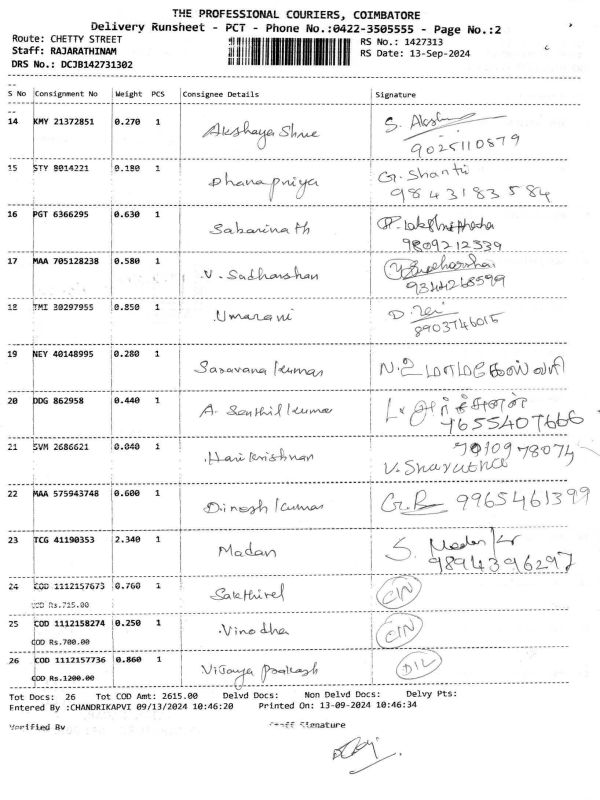 THE PROFESSIONAL COURIERS, COIMBATORE
Delivery Runsheet - PCT - Phone No.:0422-3505555 - Page No.:2
Route: CHETTY STREET RS No.: 1427313
Staff: RAJARATHINAM RS Date: 13-Sep-2024
DRS No.: DCJB142731302
S No Consignment No Weight PCS Consignee Details Signature
14 KMY 21372851 0.270 1 Akshaya Shree S. Aksh
9025110879
15 STY 8014221 0.180 1 Dhanapriya G. Shanthi
9843183584
16 PGT 6366295 0.630 1 Sabarinath
9809212339
17 MAA 705128238 0.580 1 V. Sadharshan
9344268599
18 TMI 30297955 0.850 1 Umarani D.
8903746015
19 NEY 40148995 0.280 1 Saravana kumar N. உமாமகேஸ்வரி
20 DDG 862958 0.440 1 A. Senthil kumar
9655407666
21 SVM 2686621 0.040 1 Hari krishnan 7010978074
V. Sharutha
22 MAA 575943748 0.600 1 Dinesh kumar 9965461399
23 TCG 41190353 2.340 1 Madan S. Madan kr
9894396297
24 COD 1112157673 0.760 1 Sakthivel CIN
COD Rs.715.00
25 COD 1112158274 0.250 1 Vinodha CIN
COD Rs.700.00
26 COD 1112157736 0.860 1 Vijaya Prakash DIL
COD Rs.1200.00
Tot Docs: 26 Tot COD Amt: 2615.00 Delvd Docs: Non Delvd Docs: Delvy Pts:
Entered By :CHANDRIKAPVI 09/13/2024 10:46:20 Printed On: 13-09-2024 10:46:34
Verified By Staff Signature